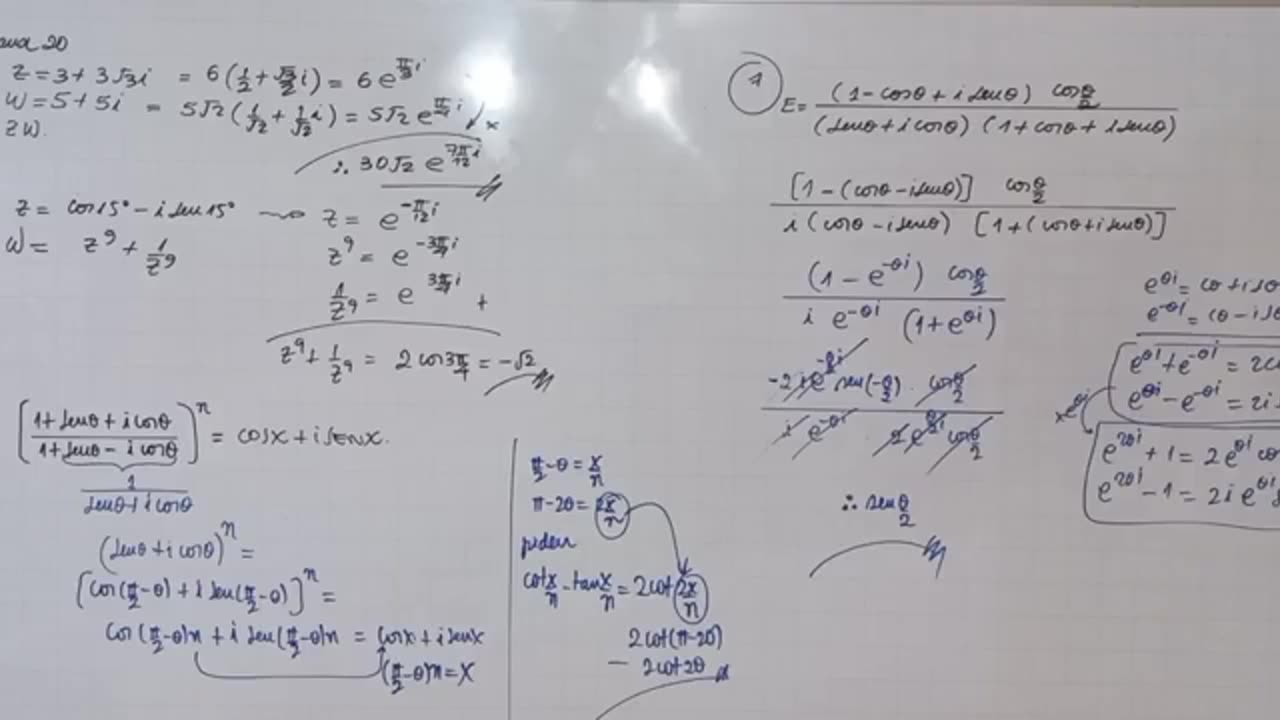 20
Z = 3 + 3√3i = 6(1/2 + √3/2 i) = 6 e^(π/3 i)
W = 5 + 5i = 5√2(1/√2 + 1/√2 i) = 5√2 e^(π/4 i) ×
ZW.
∴ 30√2 e^(7π/12 i)
Z = cos15° - i sen15° ⟿ Z = e^(-π/12 i)
W = Z^9 + 1/Z^9
Z^9 = e^(-3π/4 i)
1/Z^9 = e^(3π/4 i) +
Z^9 + 1/Z^9 = 2 cos 3π/4 = -√2
[(1 + senθ + i cosθ)/(1 + senθ - i cosθ)]^n = cosx + i senx.
1/(senθ + i cosθ)
(senθ + i cosθ)^n =
[cos(π/2 - θ) + i sen(π/2 - θ)]^n =
cos(π/2 - θ)n + i sen(π/2 - θ)n = cosx + i senx
(π/2 - θ)n = x
π/2 - θ = x/n
π - 2θ = 2x/n
piden
cot x/n - tan x/n = 2cot 2x/n
2cot(π - 2θ)
- 2cot2θ
1
E = (1 - cosθ + i senθ) cos θ/2 / (senθ + i cosθ) (1 + cosθ + i senθ)
[1 - (cosθ - i senθ)] cos θ/2 / i (cosθ - i senθ) [1 + (cosθ + i senθ)]
(1 - e^(-θi)) cos θ/2 / i e^(-θi) (1 + e^(θi))
-2 i e^(-θ/2 i) sen(-θ/2) . cos θ/2 / i e^(-θi) 2 e^(θ/2 i) cos θ/2
∴ sen θ/2
e^(θi) = cθ + i
e^(-θi) = cθ - i
e^(θi) + e^(-θi) = 2
e^(θi) - e^(-θi) = 2i
× e^(θi)
e^(2θi) + 1 = 2 e^(θi)
e^(2θi) - 1 = 2i e^(θi)